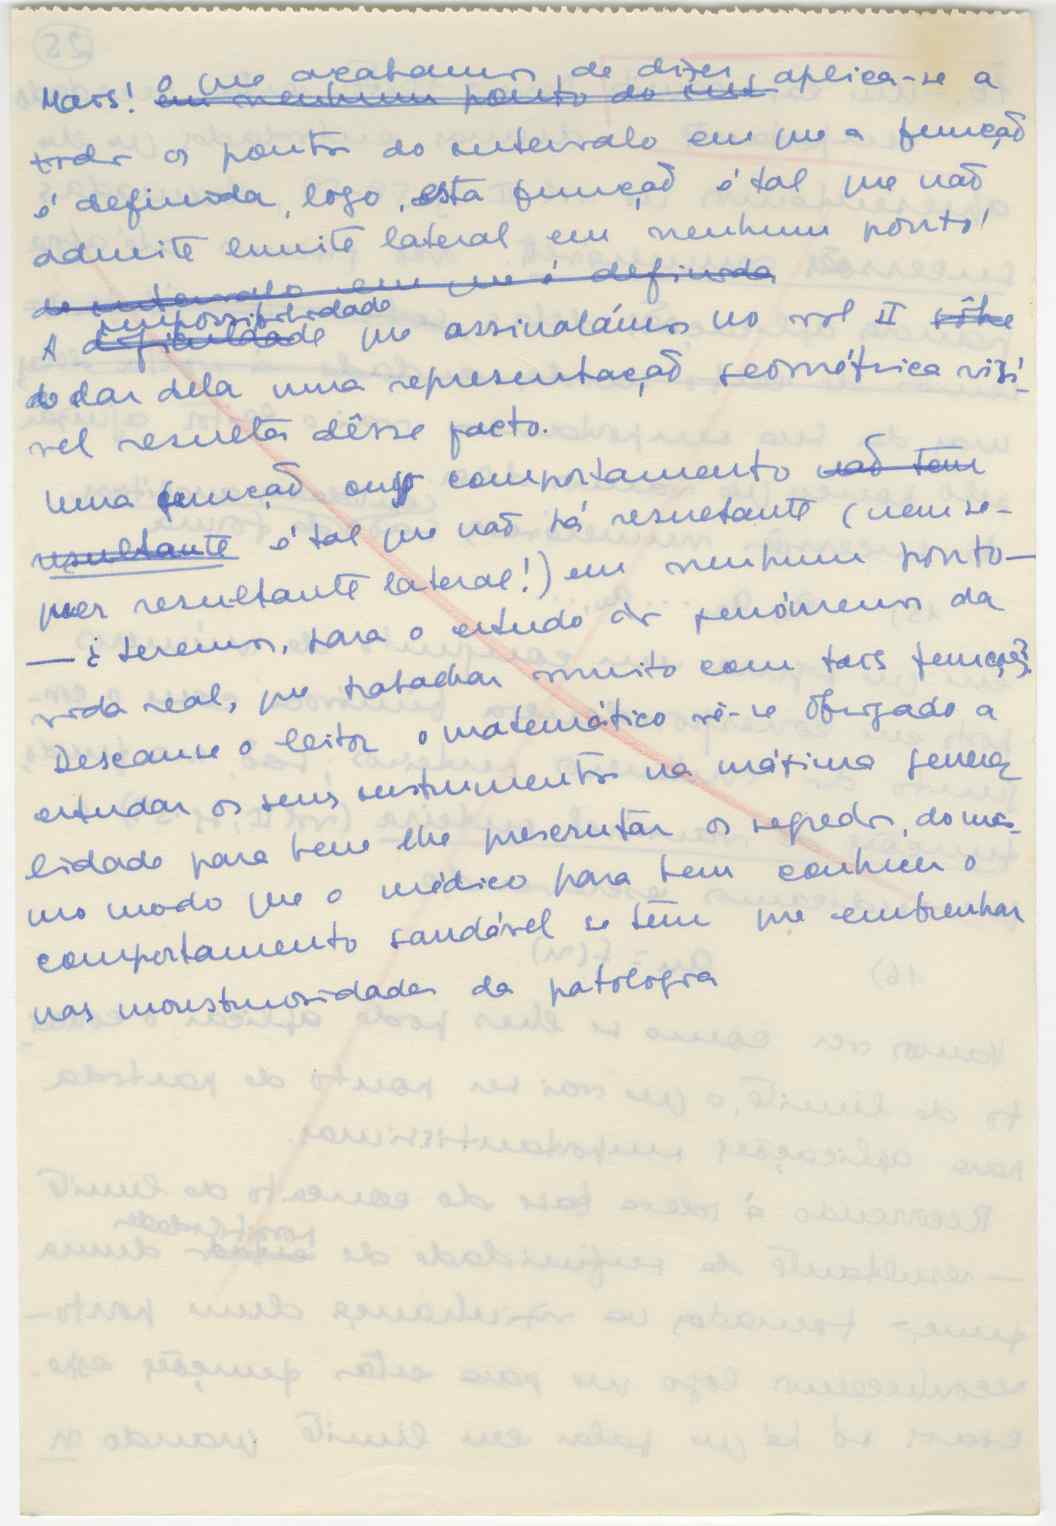 Mais! o que acabamos de dizer, aplica-se a
~~em nenhum ponto do int~~
todos os pontos do intervalo em que a função
é definida, logo, esta função é tal que não
admite limite lateral em nenhum ponto!
~~do intervalo em que é definida~~
impossibilidade
A ~~dificuldade~~ que assinalámos no vol II ~~sôbre~~
de dar dela uma representação geométrica visí-
vel resulta dêsse facto.
Uma função cujo comportamento ~~não tem~~
~~resultante~~ é tal que não há resultante (nem se-
quer resultante lateral!) em nenhum ponto —
— ¿ teremos, para o estudo dos fenómenos da
vida real, que trabalhar muito com tais funções?
Descanse o leitor o matemático vê-se obrigado a
estudar os seus instrumentos na máxima genera-
lidade para bem lhe prescrutar os segredos, do mes-
mo modo que o médico para bem conhecer o
comportamento saudável se têm que embrenhar
nas monstruosidades da patologia